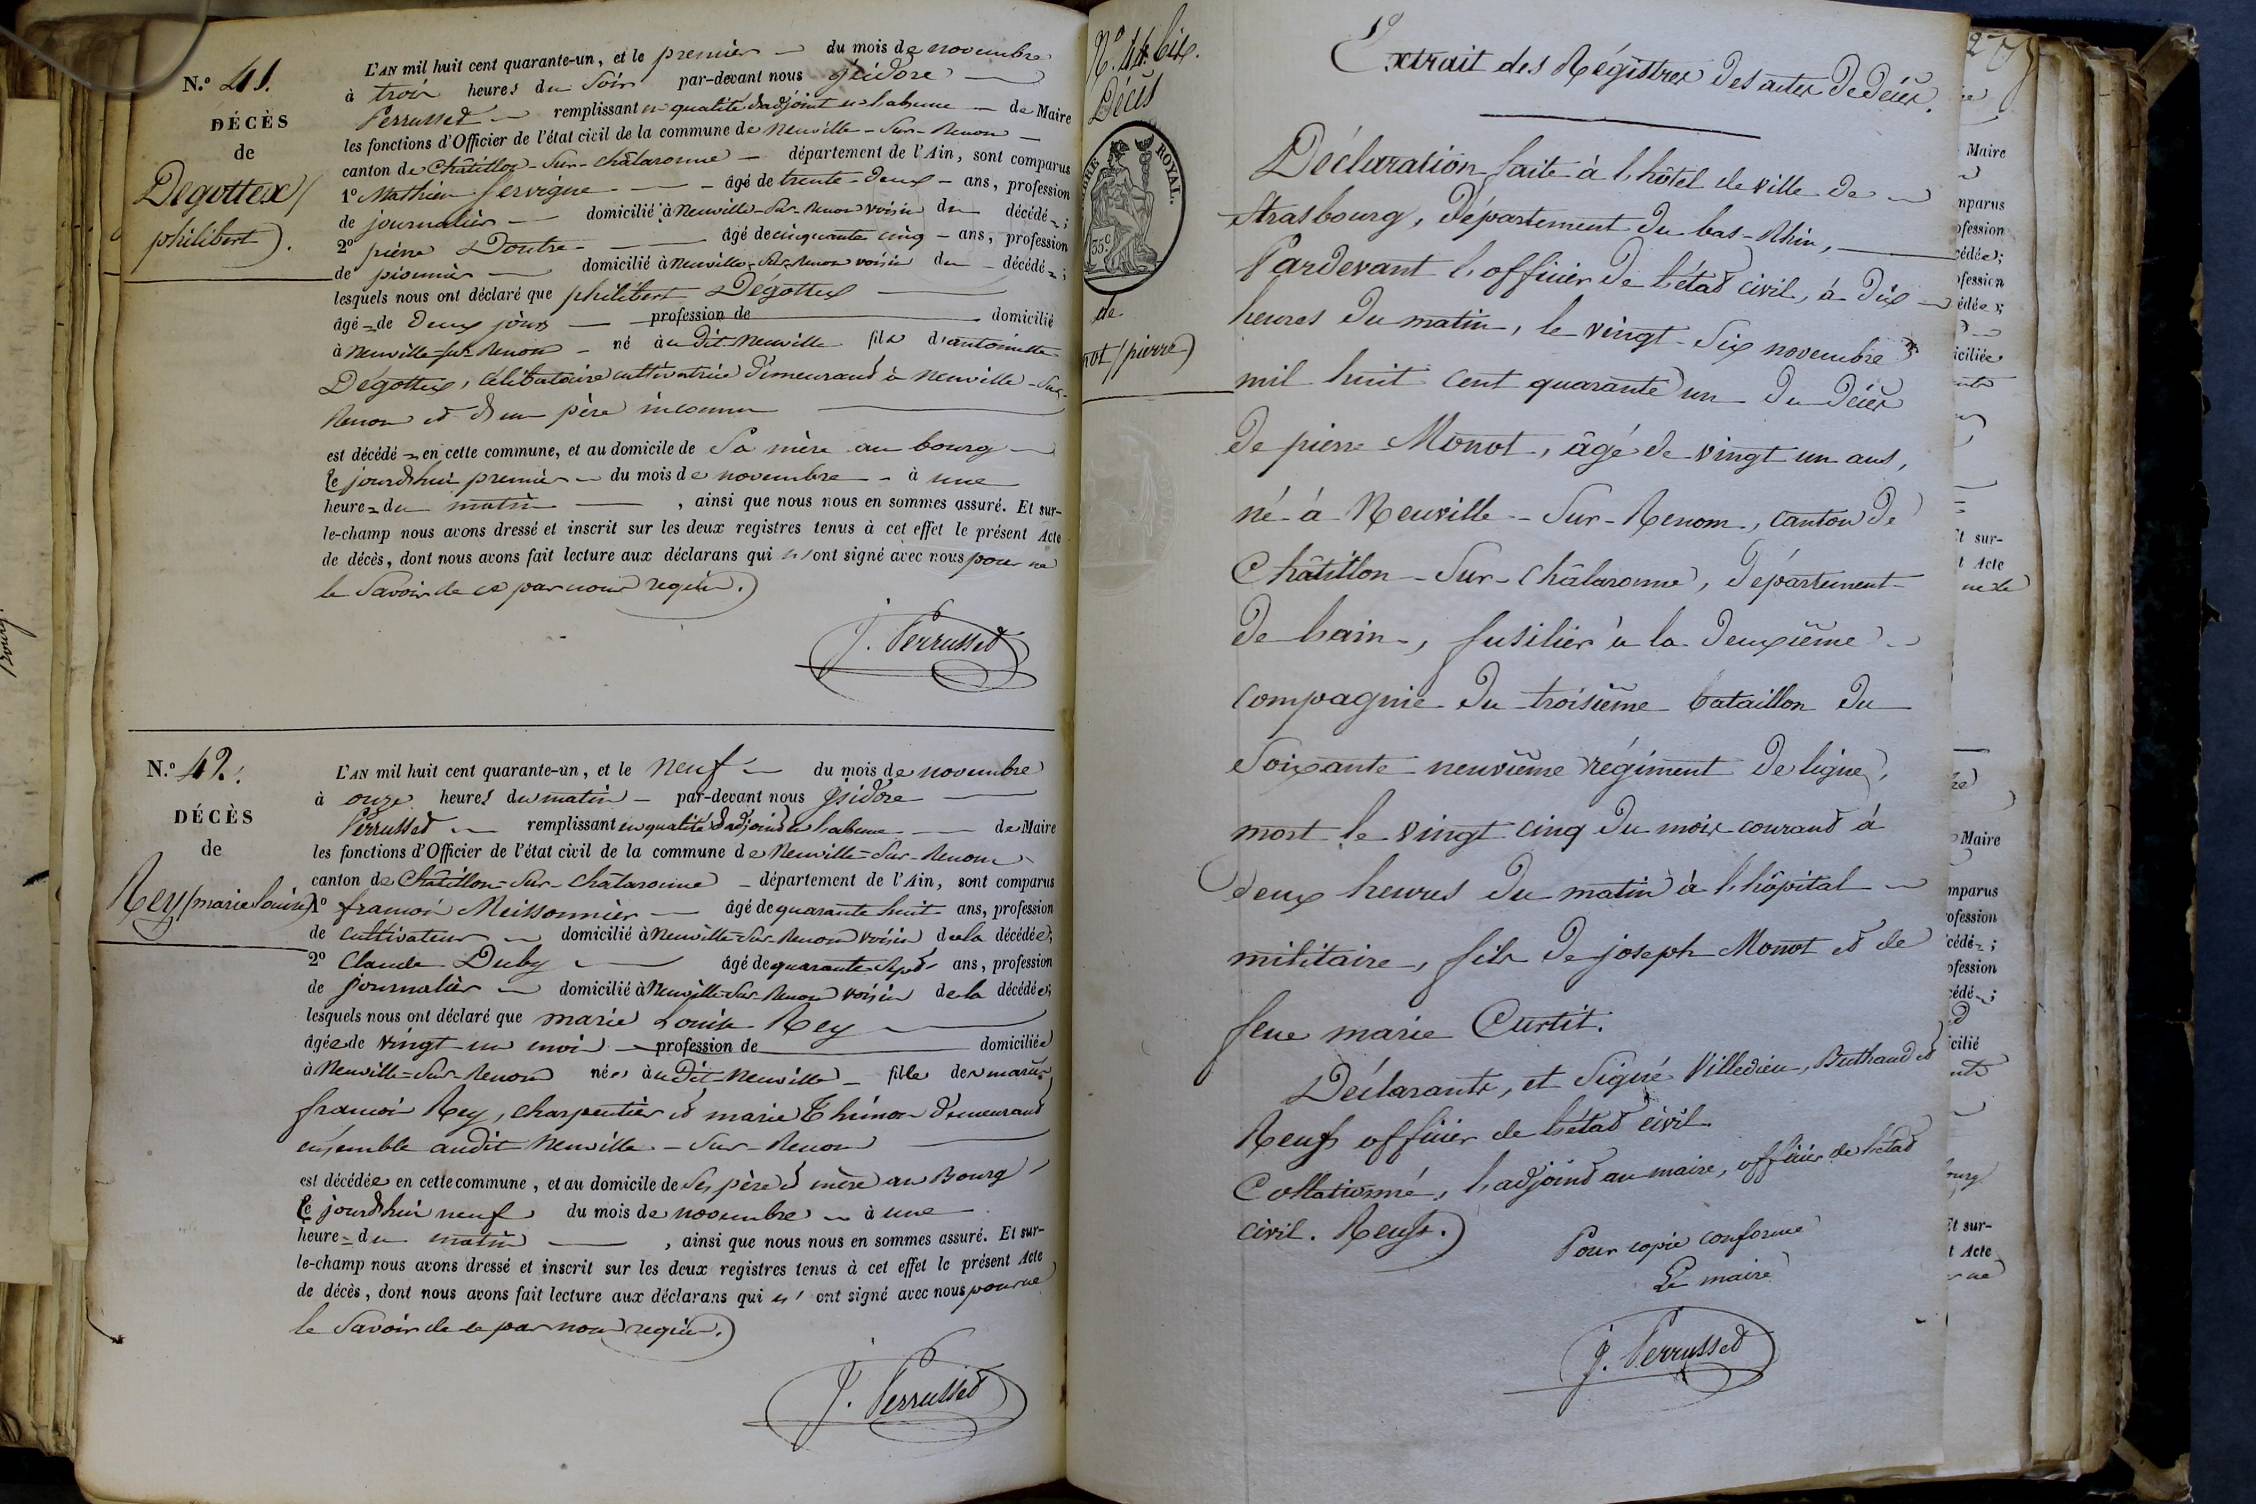 N.º 41.
DÉCÈS
de
Degottex (
philibert).
L'AN mil huit cent quarante-un, et le premier du mois de novembre
à trois heures du soir par-devant nous isidore
Perrussed remplissant en qualité d'adjoint en l'absence de Maire
les fonctions d'Officier de l'état civil de la commune de neuville-sur-Renom
canton de Châtillon-sur-châlaronne département de l'Ain, sont comparus
1º Mathieu servigne âgé de trente-deux ans, profession
de journalier domicilié à neuville-sur-Renom voisin du décédé;
2º pierre Doutre âgé de cinquante cinq ans, profession
de pionnier domicilié à neuville-sur-Renom voisin du décédé;
lesquels nous ont déclaré que philibert Dégottex
âgé de deux jours profession de domicilié
à neuville-sur-Renom né audit neuville fils d'antoinette
Dégottex, célibataire cultivatrice demeurand à neuville-sur-
Renom et d'un père inconnu
est décédé en cette commune, et au domicile de sa mère au bourg
le jourd'hui premier du mois de novembre à une
heure du matin, ainsi que nous nous en sommes assuré. Et sur-
le-champ nous avons dressé et inscrit sur les deux registres tenus à cet effet le présent Acte
de décès, dont nous avons fait lecture aux déclarans qui n'ont signé avec nous pour ne
le savoir de ce par nous requis.)
J. Perrussed
N.º 42.
DÉCÈS
de
Rey (marie louise)
L'AN mil huit cent quarante-un, et le neuf du mois de novembre
à onze heures du matin par-devant nous isidore
Perrussed remplissant en qualité d'adjoind en l'absence de Maire
les fonctions d'Officier de l'état civil de la commune de neuville-sur-Renom
canton de Châtillon-sur-châlaronne département de l'Ain, sont comparus
1º françois Meissonnier âgé de quarante huit ans, profession
de cultivateur domicilié à neuville-sur-Renom voisin de la décédée;
2º Claude Duby âgé de quarante sept ans, profession
de journalier domicilié à neuville-sur-Renom voisin de la décédée;
lesquels nous ont déclaré que marie Louise Rey
âgée de vingt un mois profession de domiciliée
à neuville-sur-Renom née audit neuville fille des mariés
françois Rey, charpentier et marie Thinon demeurand
ensemble audit neuville-sur-Renom
est décédée en cette commune, et au domicile de ses père et mère au Bourg
le jourd'hui neuf du mois de novembre à une
heure du matin, ainsi que nous nous en sommes assuré. Et sur-
le-champ nous avons dressé et inscrit sur les deux registres tenus à cet effet le présent Acte
de décès, dont nous avons fait lecture aux déclarans qui n'ont signé avec nous pour ne
le savoir de ce par nous requis.)
J. Perrussed
N.º 44 bis.
Décès
ROYAL.
35c
de
not (pierre)
Extrait des Régistres des actes de décès.
Déclaration faite à l'hôtel de ville de
Strasbourg, département du bas-Rhin,
Pardevant l'officier de l'état civil, à dix
heures du matin, le vingt-six novembre
mil huit cent quarante un du décès
de pierre Monot, âgé de vingt un ans,
né à Neuville-sur-Renom, canton de
Châtillon-sur-châlaronne, département
de l'ain, fusilier à la deuxième
compagnie du troisième bataillon du
soixante neuvième régiment de ligne,
mort le vingt cinq du mois courand à
deux heures du matin à l'hôpital
militaire, fils de joseph Monot et de
feue marie Curtit.
Déclarants, et signé Villedieu, Buthaud et
Reuss officier de l'état civil
Collationné, l'adjoind au maire, officier de l'état
civil. Reuss.)
Pour copie conforme
Le maire
J. Perrussed
Maire
mparus
ofession
Et sur-
t Acte
Maire
mparus
ofession
icilié
Et sur-
t Acte